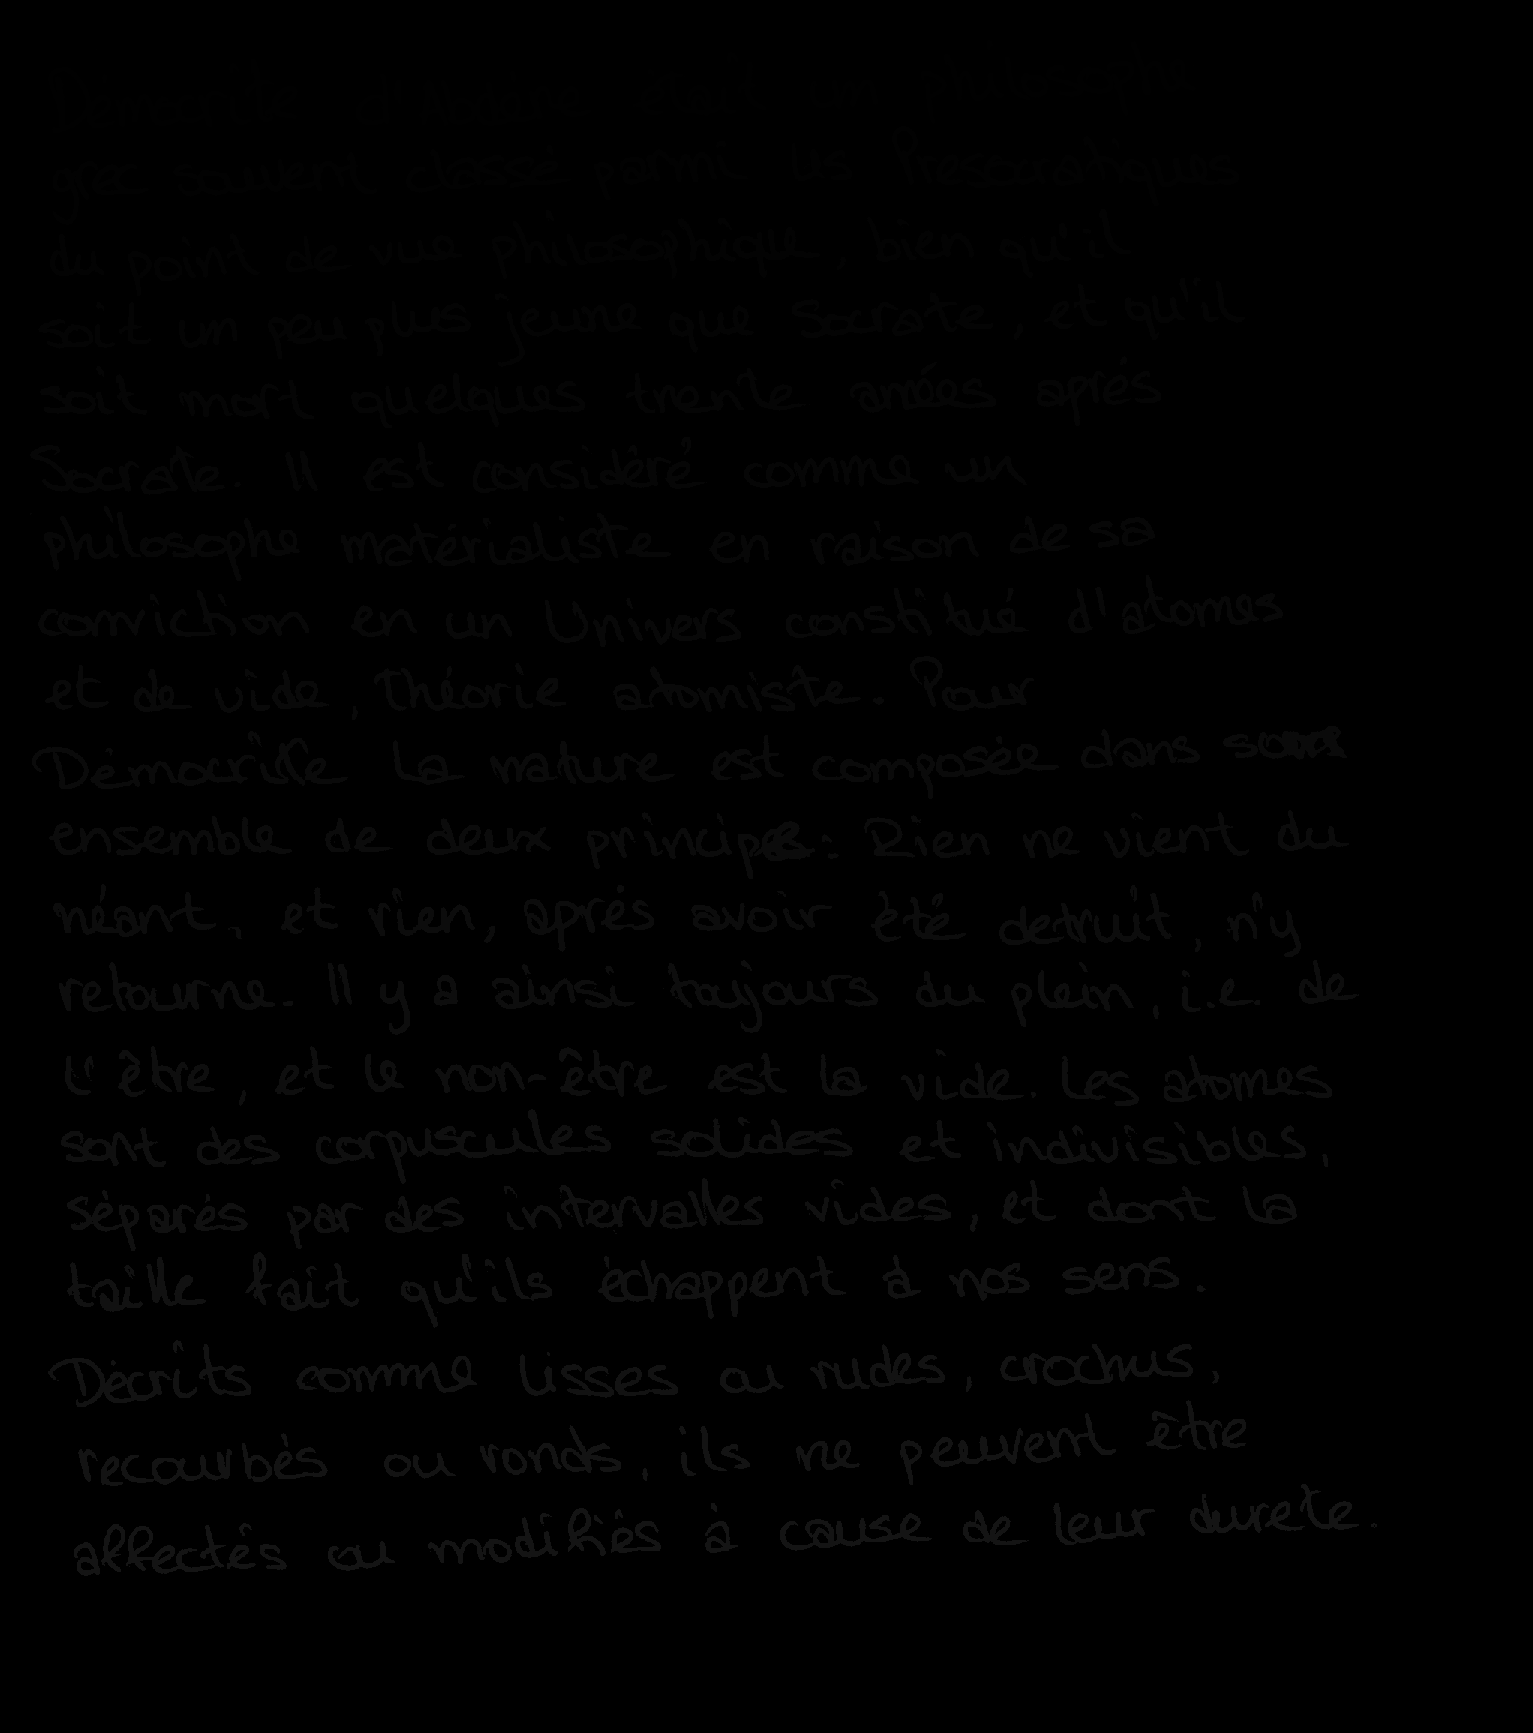 Démocrite d'Abdère était un philosophe
grec souvent classé parmi les Présocratiques
du point de vue philosophique, bien qu'il
soit un peu plus jeune que Socrate, et qu'il
soit mort quelques trente années après
Socrate. Il est considéré comme un
philosophe matérialiste en raison de sa
conviction en un Univers constitué d'atomes
et de vide, théorie atomiste. Pour
Démocrite la nature est composée dans son
ensemble de deux principes : Rien ne vient du
néant, et rien, après avoir été detruit, n'y
retourne. Il y a ainsi toujours du plein, i.e. de
l'être, et le non-être est la vide. Les atomes
sont des corpuscules solides et indivisibles,
séparés par des intervalles vides, et dont la
taille fait qu'ils échappent à nos sens.
Décrits comme lisses ou rudes, crochus,
recourbés ou ronds, ils ne peuvent être
affectés ou modifiés à cause de leur durete.